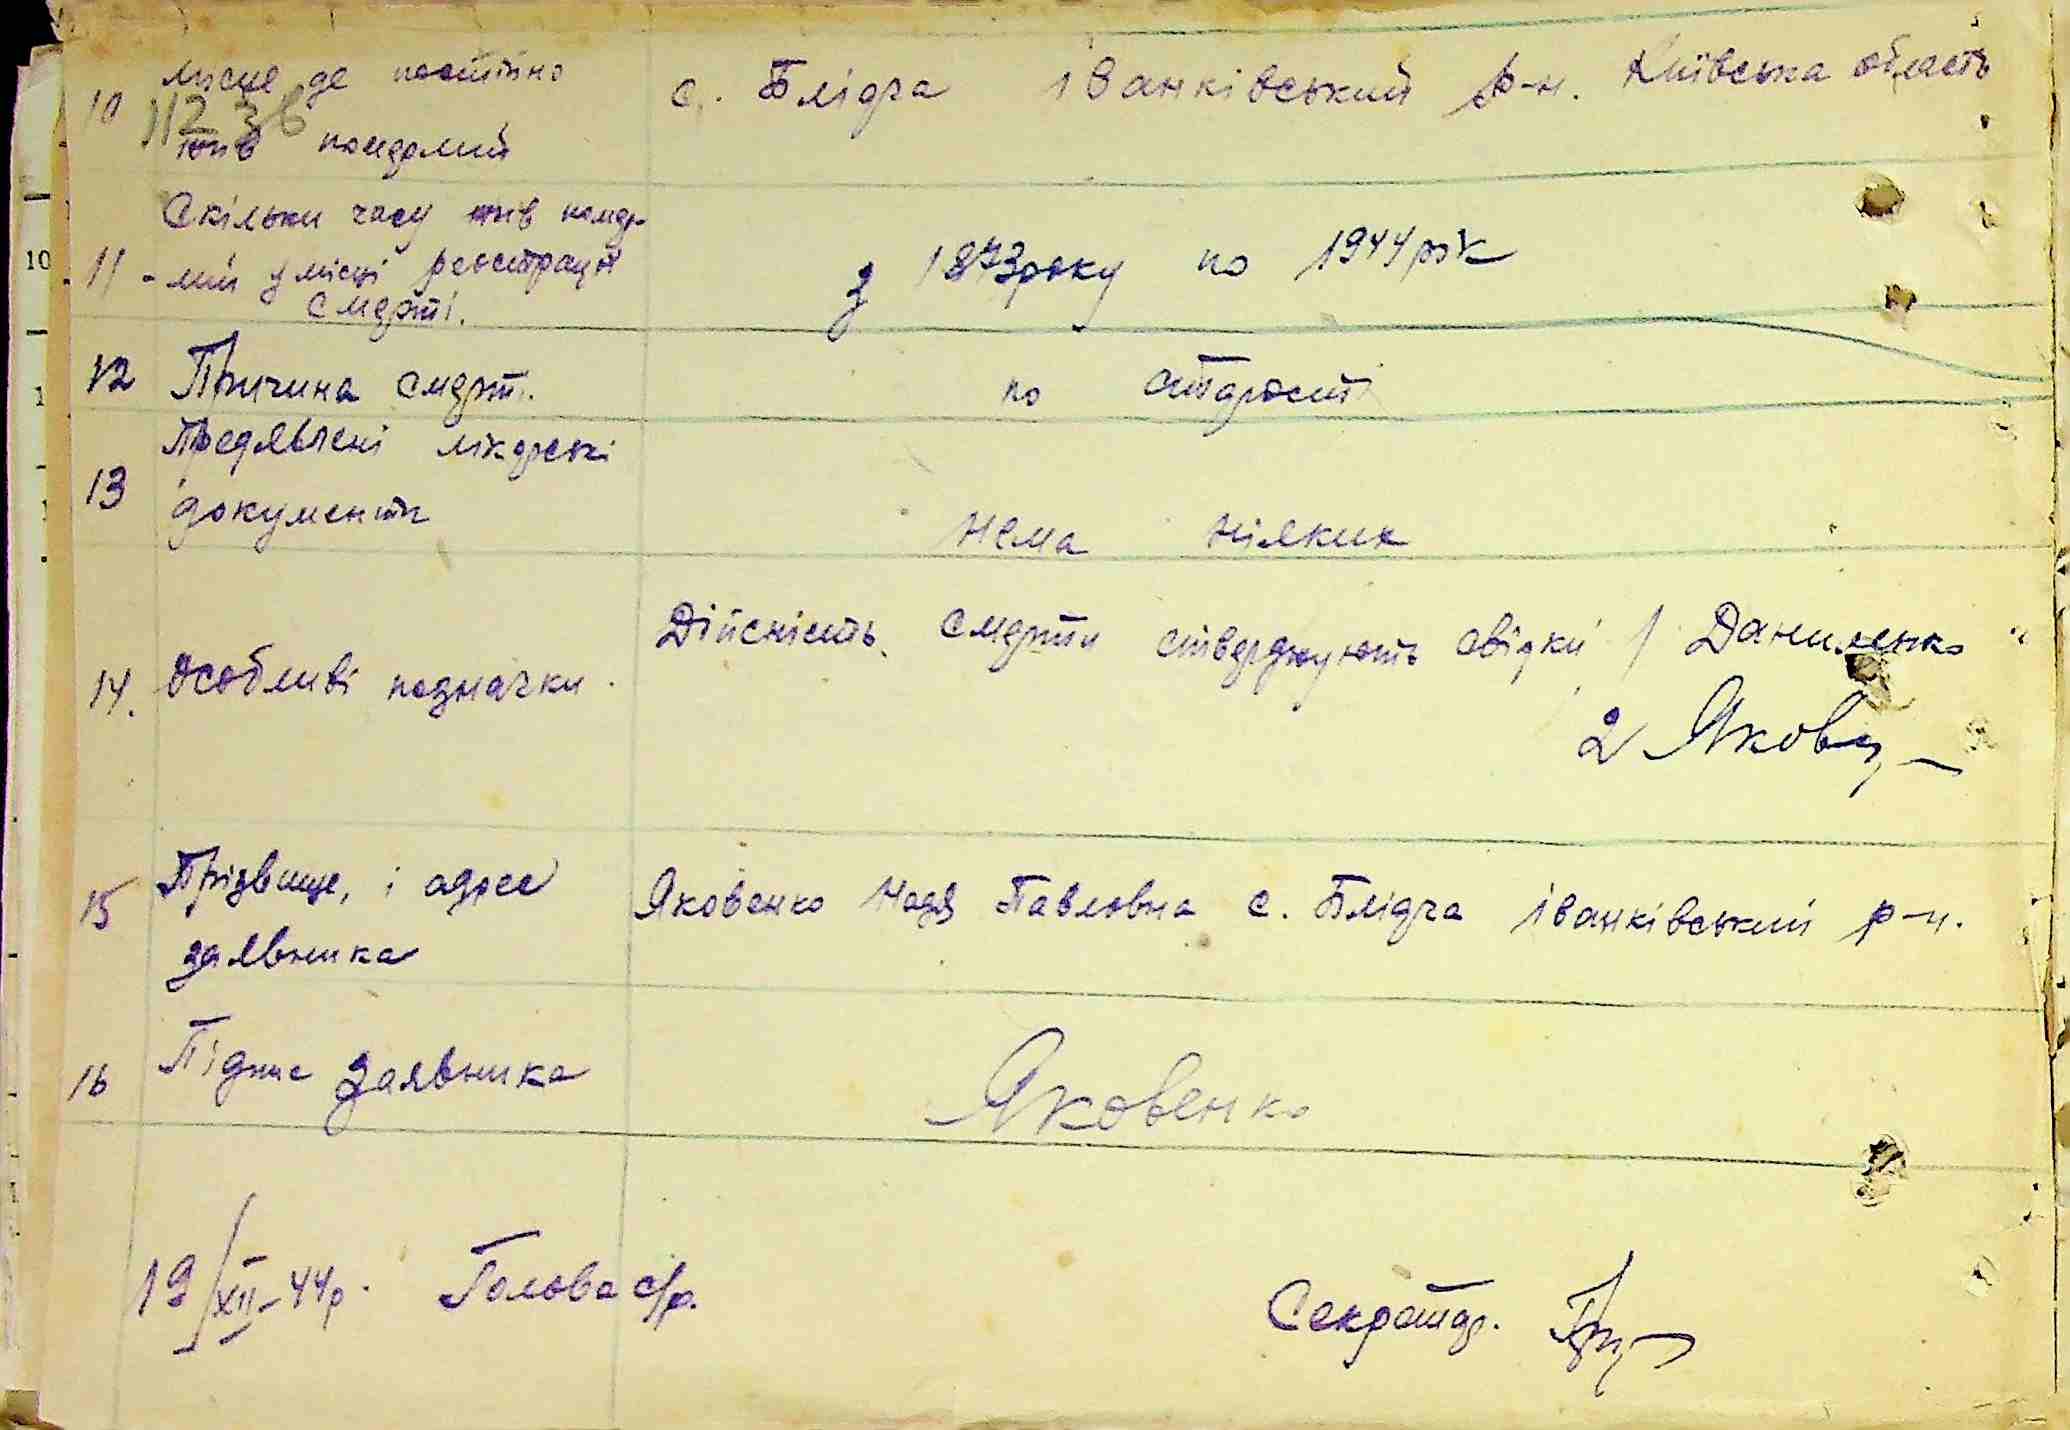 10 місце де постійно
жив померлий
с. Блідча іванківський р-н. Київська область
112 зв
11 Скільки часу жив помер-
-лий у місці реєстрації
смерті.
з 1873 року по 1944 рік
12 Причина смерті.
по старості
13 Предявлені лікарські
документи
нема ніяких
14. Особливі позначки.
Дійсність смерти стверджують свідки 1 Даниленко
2 Яковец
15 Прізвище, і адрес
заявника
Яковенко Надя Павловна с. Блідча іванківський р-н.
16 Підпис заявника
Яковенко
19/XII-44р. Голова с/р. Секретар.
10
1